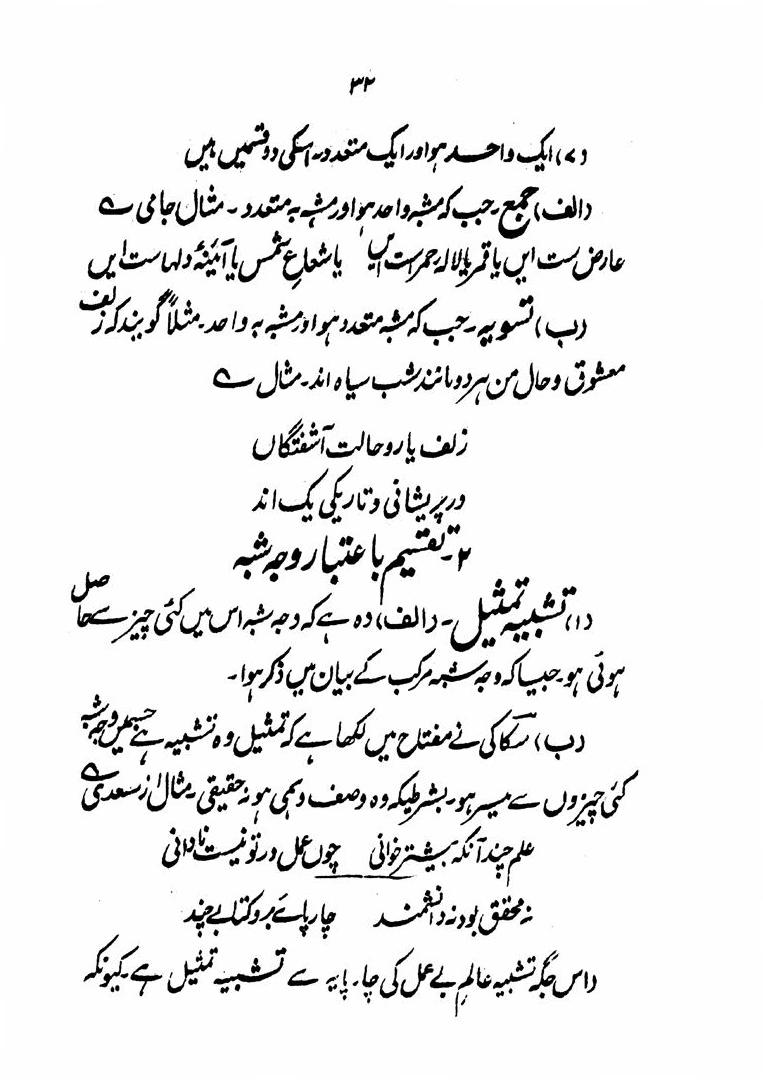 ۳۲
(۷) ایک واحد ہو اور ایک متعدد۔ اسکی دو قسمیں ہیں
(الف) جمع۔ جب کہ مشبہ واحد ہو اور مشبہ بہ متعدد۔ مثال جامی ے
عارض ست ایں یا قمر یا لالہ حمراست ایں یا شعاعِ شمس یا آئینۂ دلہاست ایں
(ب) تسویہ۔ جب کہ مشبہ متعدد ہو اور مشبہ بہ واحد۔ مثلاً گویند کہ زلف
معشوق و حال من ہر دو مانند شب سیاہ اند۔ مثال ے
زلف یار و حالت آشفتگاں
در پریشانی و تاریکی یک اند
۲۔ تقسیم باعتبار وجہ شبہ
(۱) تشبیہ تمثیل۔ (الف) وہ ہے کہ وجہ شبہ اس میں کئی چیز سے حاصل
ہوئی ہو۔ جیسا کہ وجہ شبہ مرکب کے بیان میں ذکر ہوا۔
(ب) سکاکی نے مفتاح میں لکھا ہے کہ تمثیل وہ تشبیہ ہے جسمیں وجہ شبہ
کئی چیزوں سے میسر ہو۔ بشرطیکہ وہ وصف وہمی ہو نہ حقیقی۔ مثال از سعدی ے
علم چند آنکہ بیشتر خوانی چوں عمل در تو نیست نادانی
نہ محقق بود نہ دانشمند چارپائے برو کتابے چند
(اس جگہ تشبیہ عالمِ بے عمل کی چارپایہ سے تشبیہ تمثیل ہے۔ کیونکہ